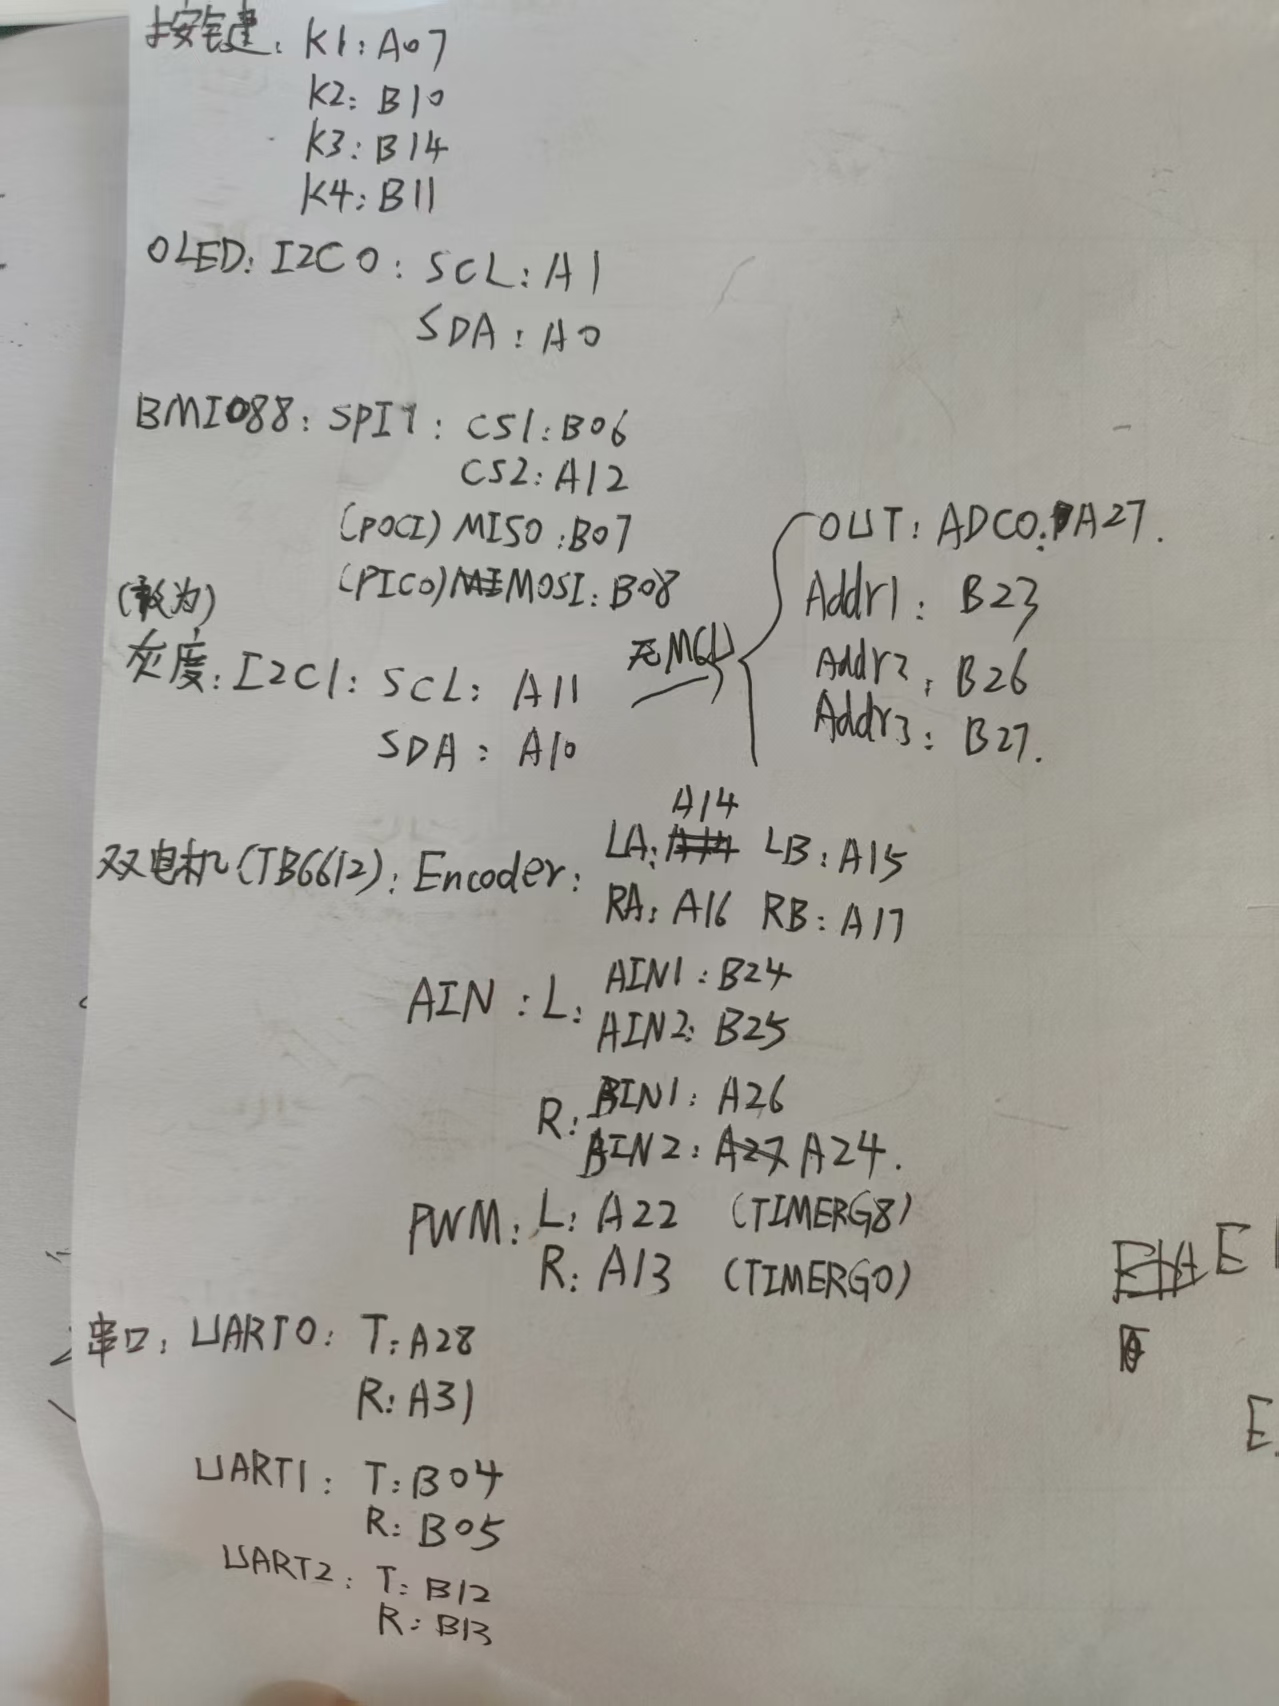 按键: K1: A07
K2: B10
K3: B14
K4: B11
OLED: I2C0: SCL: A1
SDA: A0
BMI088: SPI1: CS1: B06
CS2: A12
(POCI) MISO: B07
(PICO) MOSI: B08
(敢为)
灰度: I2C1: SCL: A11
SDA: A10
无MCU
OUT: ADC0: A27.
Addr1: B23
Addr2: B26
Addr3: B27.
双电机(TB6612): Encoder: LA: A14 LB: A15
RA: A16 RB: A17
AIN: L: AIN1: B24
AIN2: B25
R: BIN1: A26
BIN2: A27 A24.
PWM: L: A22 (TIMERG8)
R: A13 (TIMERG0)
串口: UART0: T: A28
R: A31
UART1: T: B04
R: B05
UART2: T: B12
R: B13
E
E